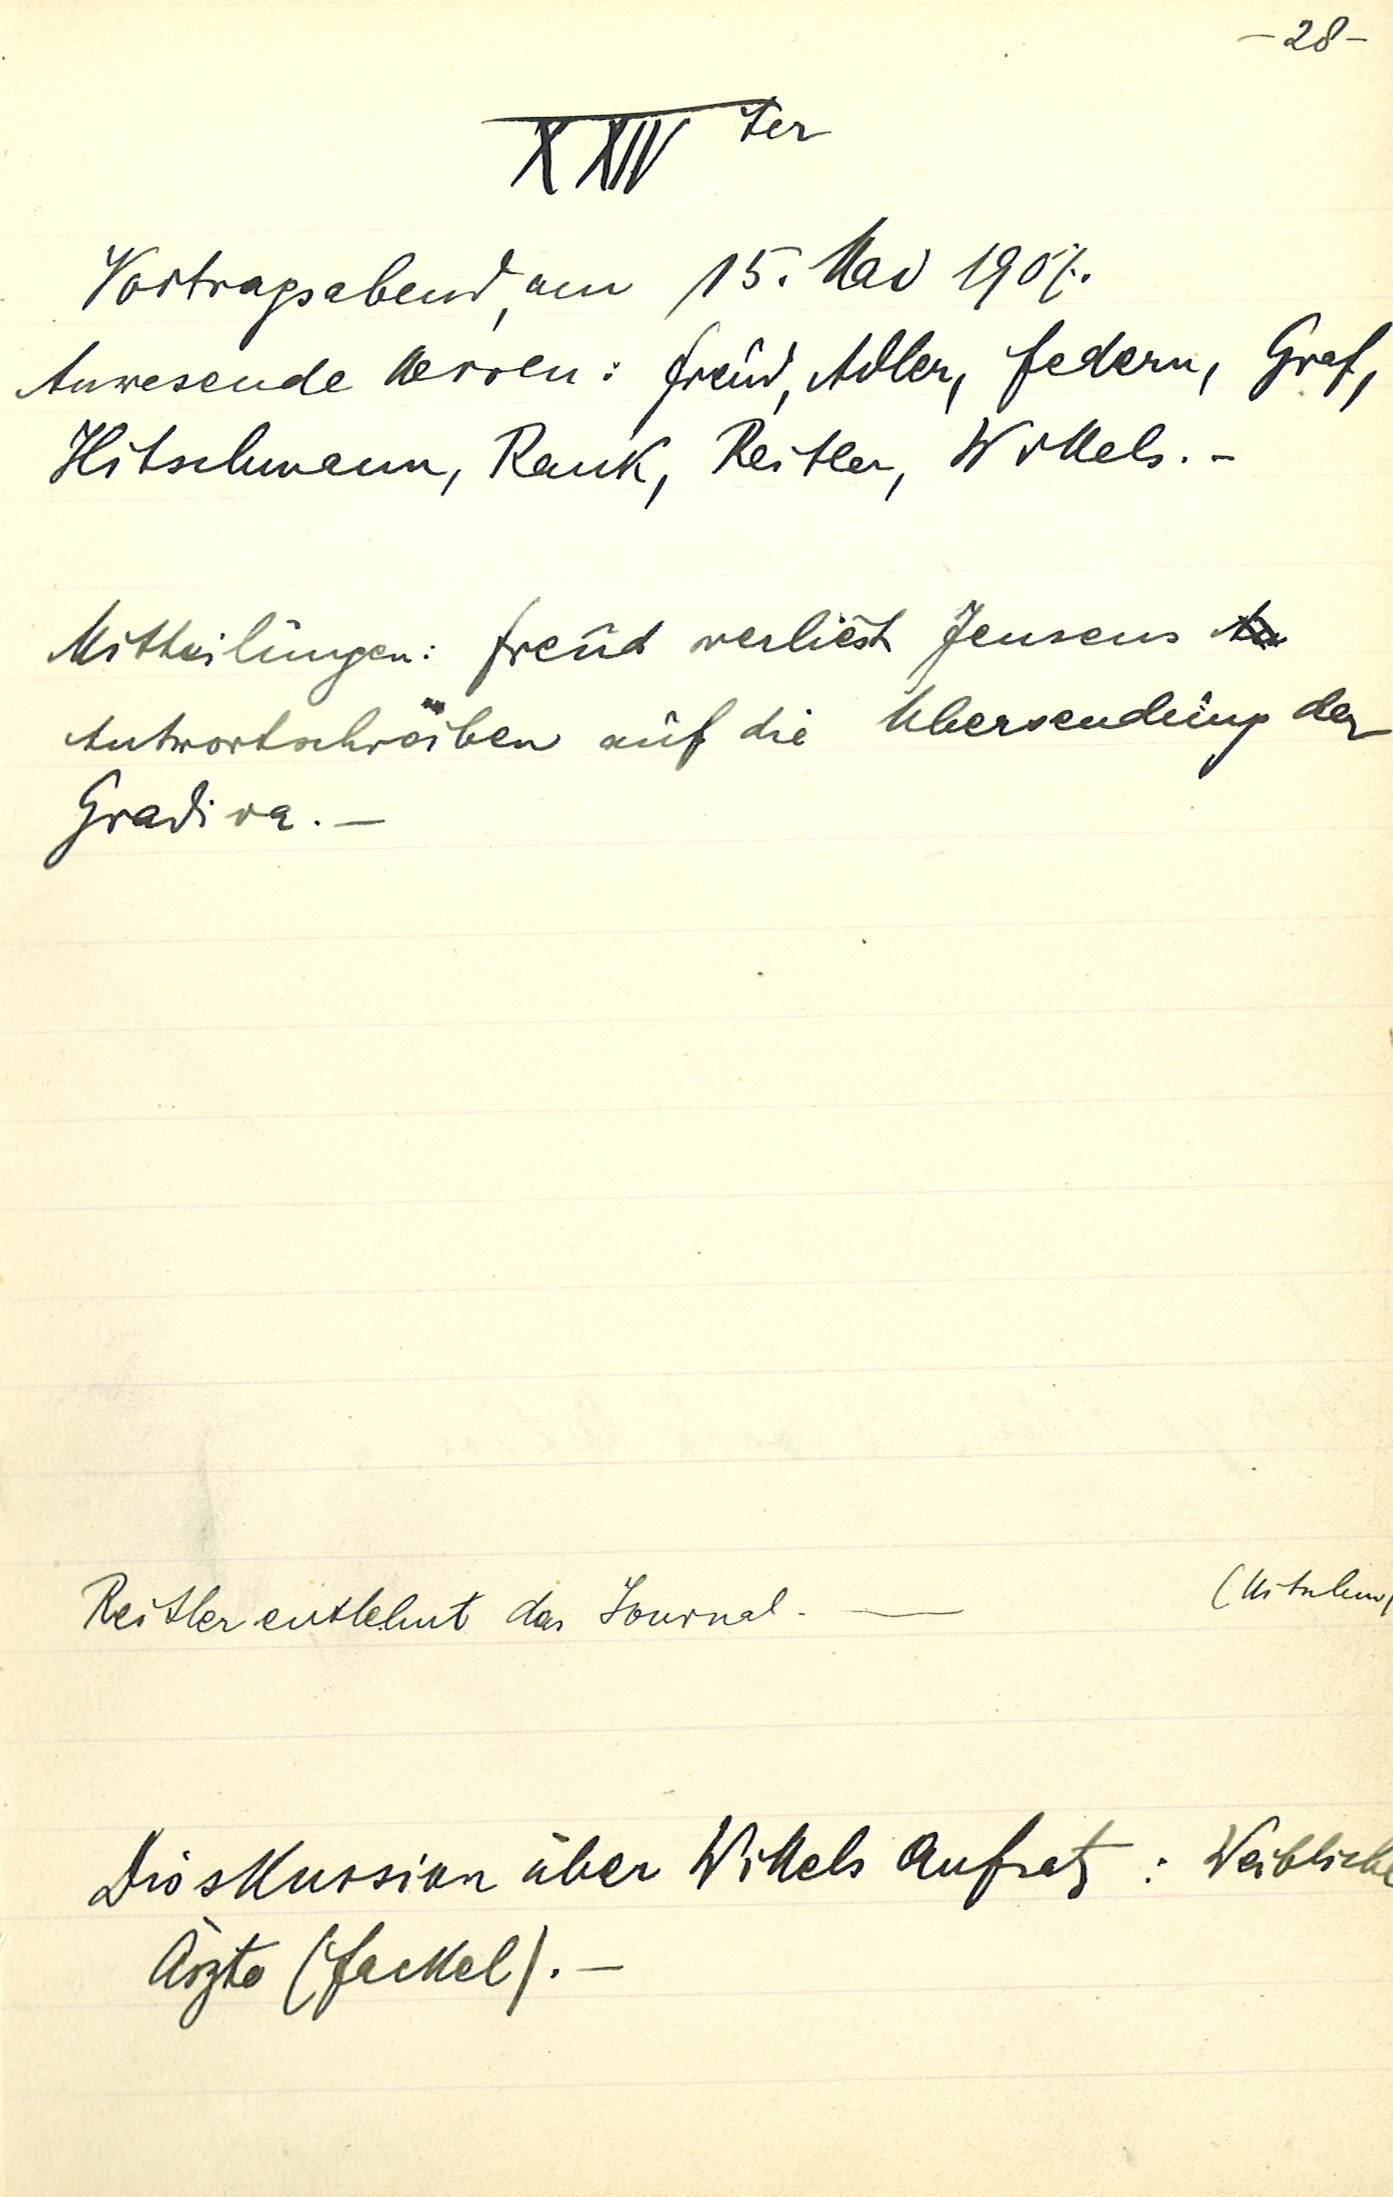 -28-
XXIV ter
Vortragsabend, am 15. Mai 1907.
Anwesende Herren: Freud, Adler, Federn, Graf,
Hitschmann, Rank, Reitler, Wittels. -
Mittheilungen: Freud verliest Jensens
Antwortschreiben auf die Übersendung der
Gradiva. —
Reitler entlehnt das Journal. —
Diskussion über Wittels Aufsatz: Weibliche
Ärzte (Fackel). —